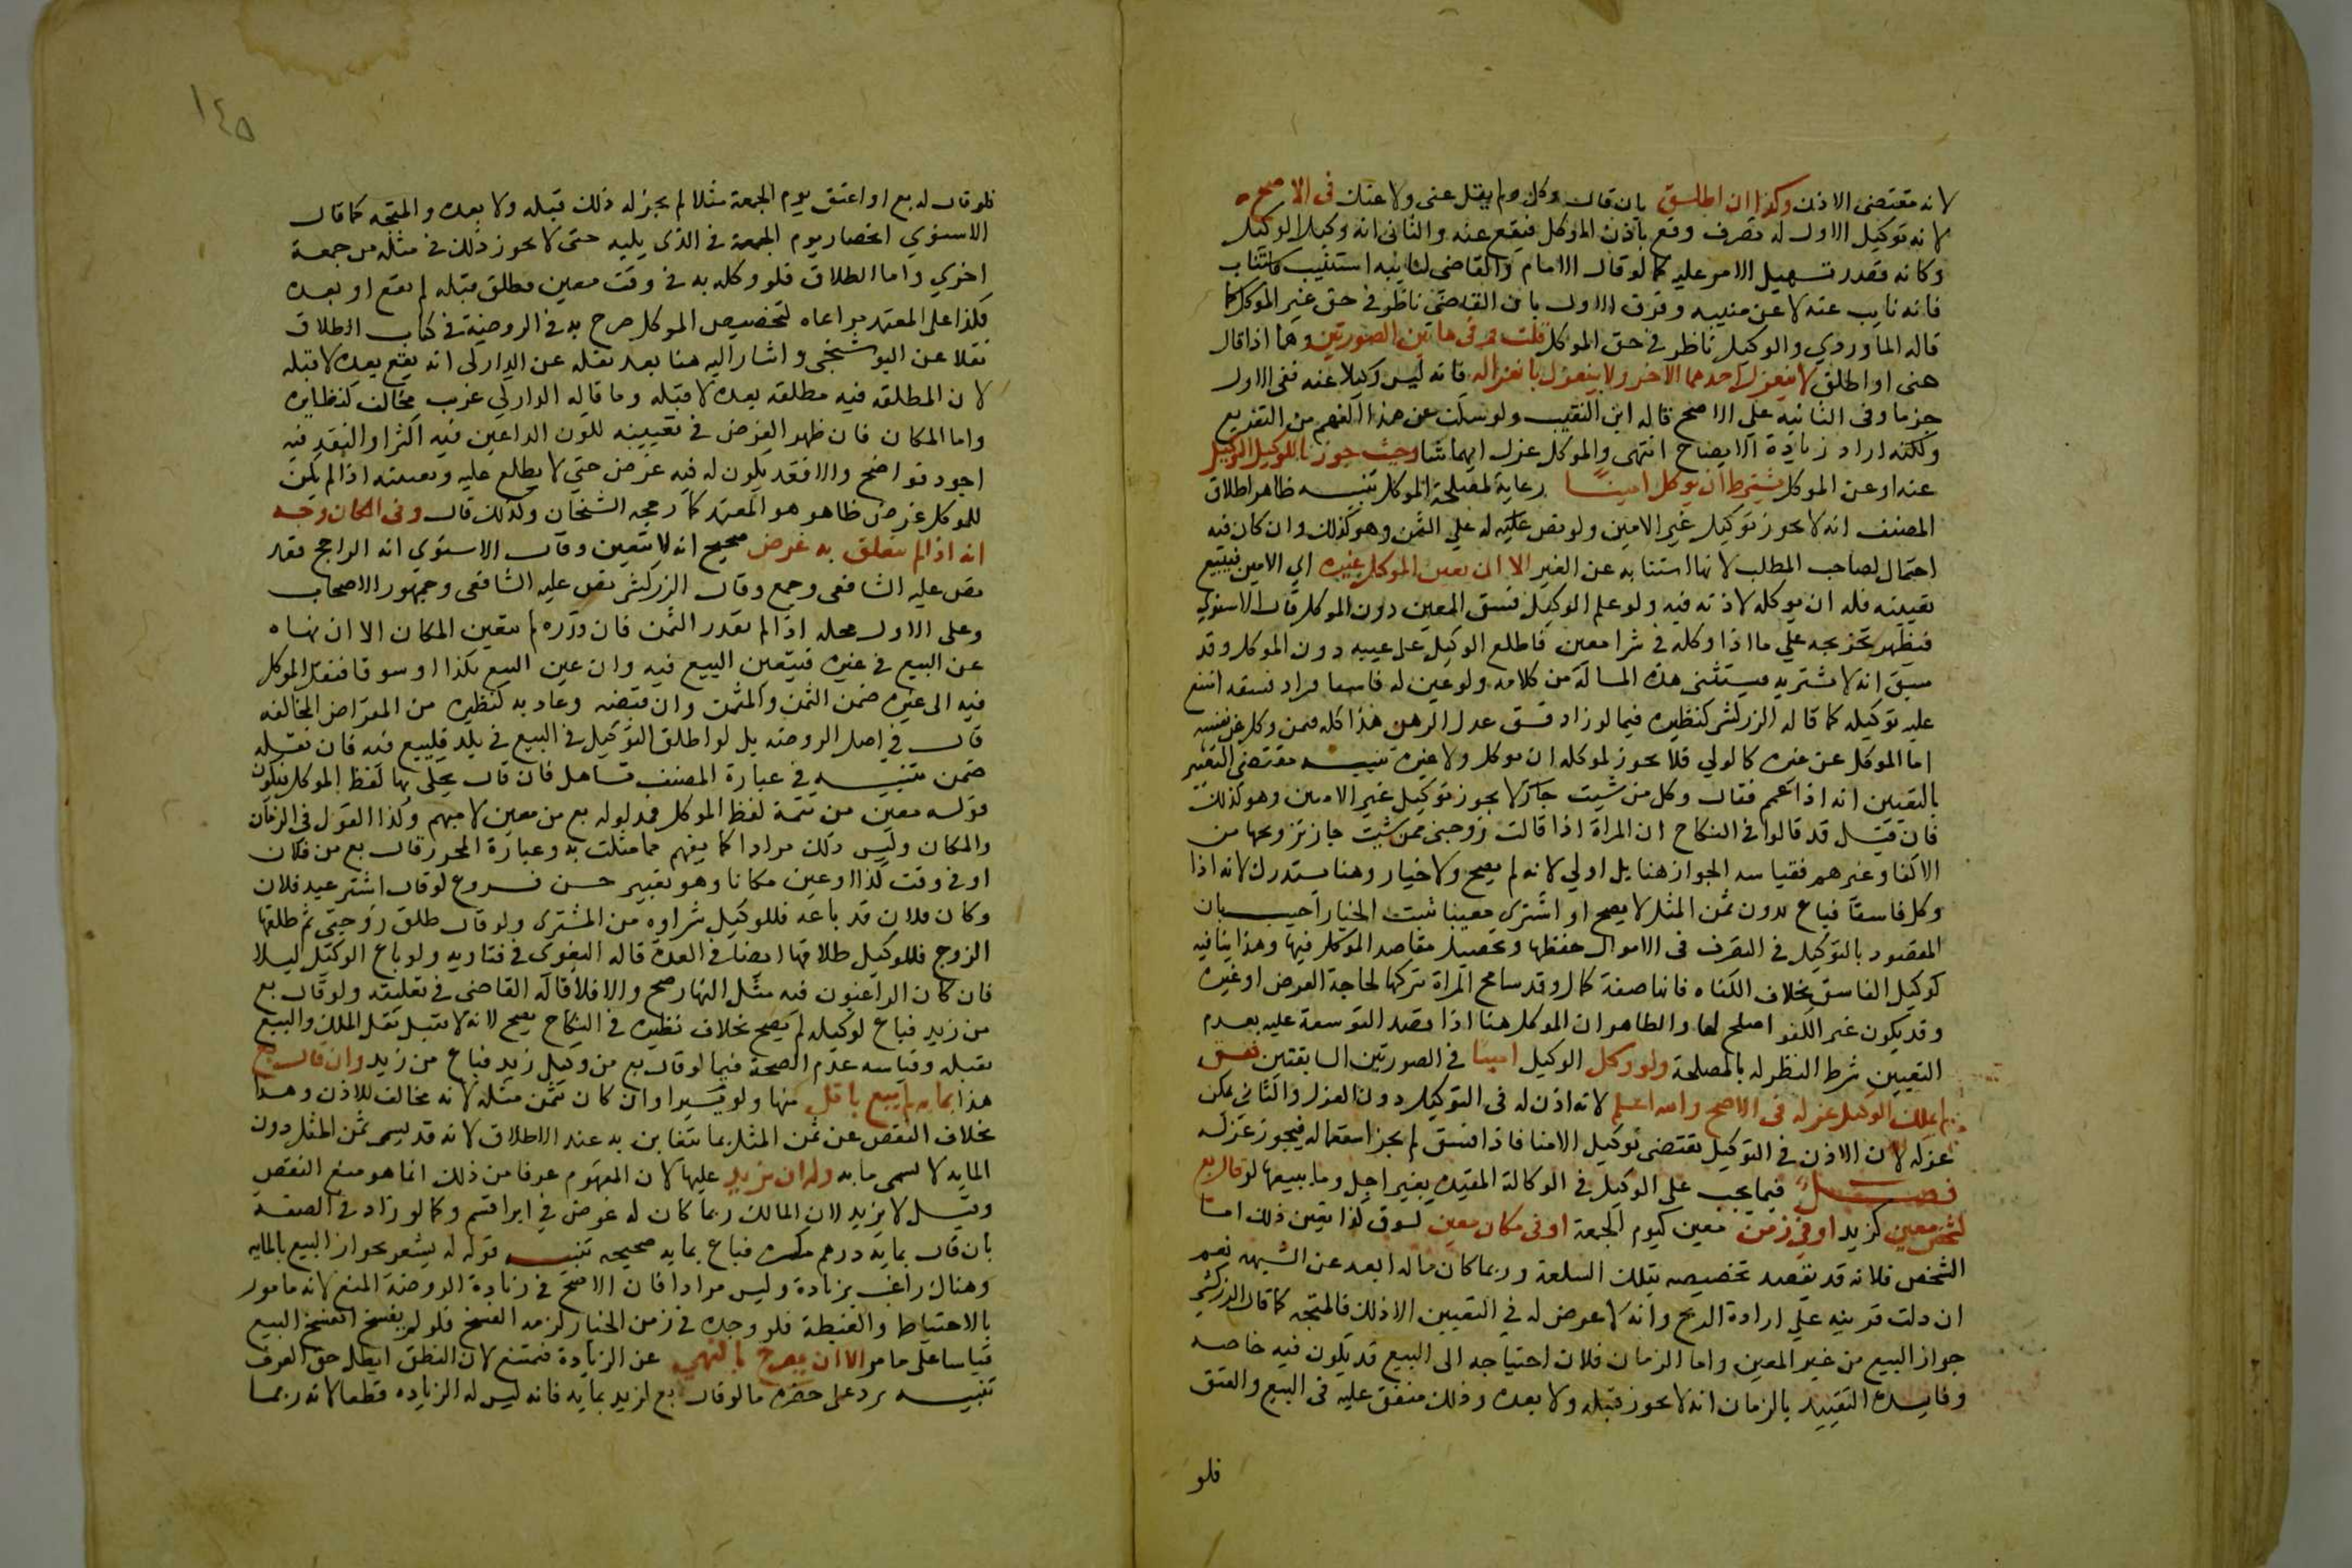 لانه مقتضى الاذن وكذا ان اطلق بان قال وكل ولم يقل عنى ولا عنك فى الاصح
لانه توكيل الاول له تصرف وقع باذن الموكل فيقع عنه والثانى انه وكيل الوكيل
وكانه قصد تسهيل الامر عليه كما لو قال الامام والقاضى لنايبه استنيب فاستناب
فانه نايب عنه لا عن منيبه وفرق الاول بان القاضى ناظر فى حق غير الموكل كما
قاله الماوردي والوكيل ناظر فى حق الموكل قلت وفى هاتين الصورتين وهما اذا قال
عنى او اطلق لا ينعزل احدهما الاخر ولا ينعزل بانعزاله فانه ليس وكيلا عنه ففى الاول
جزما وفى الثانية على الاصح قاله ابن النقيب ولو سكت عن هذا لفهم من التفريع
ولكنه اراد زيادة الايضاح انتهى والموكل عزل ايهما شا وحيث جوزنا للوكيل التوكيل
عنه او عن الموكل يشترط ان يوكل امينا رعاية لمصلحة الموكل تنبيه ظاهر اطلاق
المصنف انه لا يجوز توكيل غير الامين ولو نص عليه له على الثمن وهو كذلك وان كان فيه
احتمال لصاحب المطلب لانها استنابه عن الغير الا ان يعين الموكل غيره اي الامين فيتبع
تعيينه فله ان يوكله لاذنه فيه ولو علم الوكيل فسق المعين دون الموكل قال الاسنوي
فيظهر تخريجه على ما اذا وكله فى شرا معين فاطلع الوكيل على عيبه دون الموكل وقد
سبق انه لا يشتريه فيستثنى هذه المسالة من كلامه ولو عين له فاسقا فزاد فسقه امتنع
عليه توكيله كما قاله الزركشى كنظيره فيما لو زاد فسق عدل الرهن هذا كله فيمن وكل عن نفسه
اما الموكل عن غيره كالولي فلا يجوز لموكله ان يوكل ولا غيره تنبيه مقتضى التعبير
بالتعيين انه اذا عمم فقال وكل من شيت جاز لا يجوز توكيل غير الامين وهو كذلك
فان قيل قد قالوا فى النكاح ان المراة اذا قالت زوجنى ممن شيت جاز تزويجها من
الاكفا وغيرهم فقياسه الجواز هنا بل اولي لانه لم يصح ولا خيار وهنا يستدرك لانه اذا
وكل فاسقا فباع بدون ثمن المثل لا يصح او اشترى معيبا ثبت الخيار اجيب بان
المقصود بالتوكيل فى التصرف فى الاموال حفظها وتحصيل مقاصد الموكل فيها وهذا ينافيه
توكيل الفاسق بخلاف الكفاه فانها صفة كمال وقد تسامح المراة بتركها لحاجة العرض او غيره
وقد يكون غير الكفو اصلح لها والظاهر ان الموكل هنا اذا قصد التوسعة عليه بعدم
التعيين شرط النظر له بالمصلحة ولو وكل الوكيل امينا فى الصورتين السابقتين ففسق
لم يملك الوكيل عزله فى الاصح والله اعلم لانه اذن له فى التوكيل دون العزل والثانى يملك
عزله لان الاذن فى التوكيل يقتضى توكيل الامنا فاذا فسق لم يجز استعماله فيجوز عزله
فصل فيما يجب على الوكيل فى الوكالة المقيدة بغير اجل وما يتبعها لو قال بع
لشخص معين كزيد او فى زمن معين كيوم الجمعة او فى مكان معين كسوق كذا تعين ذلك اما
الشخص فلانه قد يقصد تخصيصه بتلك السلعة وربما كان ماله ابعد عن الشبهه نعم
ان دلت قرينه على ارادة الربح وانه لا غرض له فى التعيين الا ذلك فالمتجه كما قال الزركشى
جواز البيع من غير المعين واما الزمان فلان احتياجه الى البيع قد يكون فيه خاصه
وفايدة التقييد بالزمان انه لا يجوز قبله ولا بعده وذلك متفق عليه فى البيع والعتق
فلو
١٤٥
فلو قال له بع او اعتق يوم الجمعة مثلا لم يجز له ذلك قبله ولا بعده والمتجه كما قال
الاسنوي انحصار يوم الجمعة فى الذى يليه حتى لا يجوز ذلك فى مثله من جمعة
اخري واما الطلاق فلو وكله به فى وقت معين فطلق قبله لم يقع او بعده
فكذا على المعتمد مراعاه لتخصيص الموكل صرح به فى الروضة فى كتاب الطلاق
نقلا عن البوشنجى واشار اليه هنا بعد نقله عن الداركى انه يقع بعده لا قبله
لان المطلقه فيه مطلقه بعده لا قبله وما قاله الداركي غريب مخالف لنظايره
واما المكان فان ظهر الغرض فى تعيينه لكون الراغبين فيه اكثر او النقد فيه
اجود فواضح والا فقد يكون له فيه غرض حتى لا يطلع عليه وتعيينه اذا لم يكن
للموكل غرض ظاهر هو المعتمد كما رجحه الشيخان ولذلك قال وفى المكان وجه
انه اذا لم يتعلق به غرض صحيح انه لا يتعين وقال الاسنوي انه الراجح فقد
نص عليه الشافعى وجمع وقال الزركشى نص عليه الشافعى وجمهور الاصحاب
وعلى الاول محله اذا لم يقدر الثمن فان قدره لم يتعين المكان الا ان نهاه
عن البيع فى غيره فيتعين البيع فيه وان عين للبيع بلدا او سوقا فنقل الموكل
فيه الى غيره ضمن الثمن والمثمن وان قبضه وعاد به كنظيره من القراض للمخالفه
قال فى اصل الروضه بل لو اطلق التوكيل فى البيع فى بلد فليبع فيه فان نقله
ضمن تنبيه فى عبارة المصنف تساهل فان قال يحكى بها لفظ الموكل فيكون
قوله معين من تتمة لفظ الموكل فمدلوله بع من معين لا مبهم وكذا القول فى الزمان
والمكان وليس ذلك مرادا كما يفهم مما مثلت به وعبارة المحرر قال بع من فلان
او فى وقت كذا او عين مكانا وهو تعبير حسن فروع لو قال اشتر عبد فلان
وكان فلان قد باعه فللوكيل شراوه من المشترى ولو قال طلق زوجتى ثم طلقها
الزوج فللوكيل طلاقها ايضا فى العدة قاله البغوى فى فتاويه ولو باع الوكيل ليلا
فان كان الراغبون فيه مثل النهار صح والا فلا قاله القاضى فى تعليقه ولو قال بع
من زيد فباع لوكيله لم يصح بخلاف نظيره فى النكاح يصح لانه لا يقبل نقل الملك والبيع
يقبله وقياسه عدم الصحة فيما لو قال بع من وكيل زيد فباع من زيد وان قال بع
هذا بمايه لم يبع باقل منها ولو يسيرا وان كان ثمن مثله لانه مخالف للاذن وهذا
بخلاف النقص عن ثمن المثل بما يتغابن به عند الاطلاق لانه قد يسمى ثمن المثل دون
المايه لا يسمى مايه وله ان يزيد عليها لان المفهوم عرفا من ذلك انما هو منع النقص
وقيل لا يزيد لان المالك ربما كان له غرض فى ابرا قسم وكما لو زاد فى الصفة
بان قال بماية درهم مكسره فباع بمايه صحيحه تنبيه قوله له يشعر بجواز البيع بالمايه
وهناك راغب بزيادة وليس مرادا فان الاصح فى زيادة الروضة المنع لانه مامور
بالاحتياط والغبطة فلو وجده فى زمن الخيار لزمه الفسخ فلو لم يفسخ انفسخ البيع
قياسا على ما مر الا ان يصرح بالنهى عن الزيادة فيمتنع لان النطق ابطل حق العرف
تنبيه يرد على حصره ما لو قال بع لزيد بمايه فانه ليس له الزياده قطعا لانه ربما